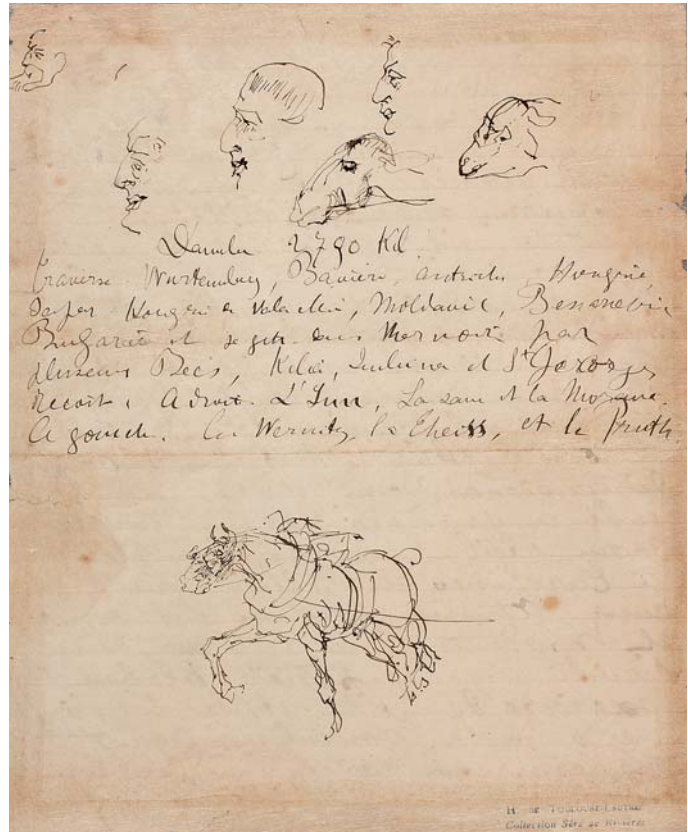 Danube 2790 Kil.
traverse Wurtemberg, Bavière, Autriche, Hongrie,
Hongrie Valachie, Moldavie, Bessarabie
Bulgarie et se jette dans Mer noire par
plusieurs Becs, Kilia, Sulina et St Georges
Recoit, A droite. L'Inn, La Save et la Morava.
A gauche. La Wernitz, la Theiss, et le Pruth.
H de TOULOUSE-LAUTREC
Collection Séré de Rivières